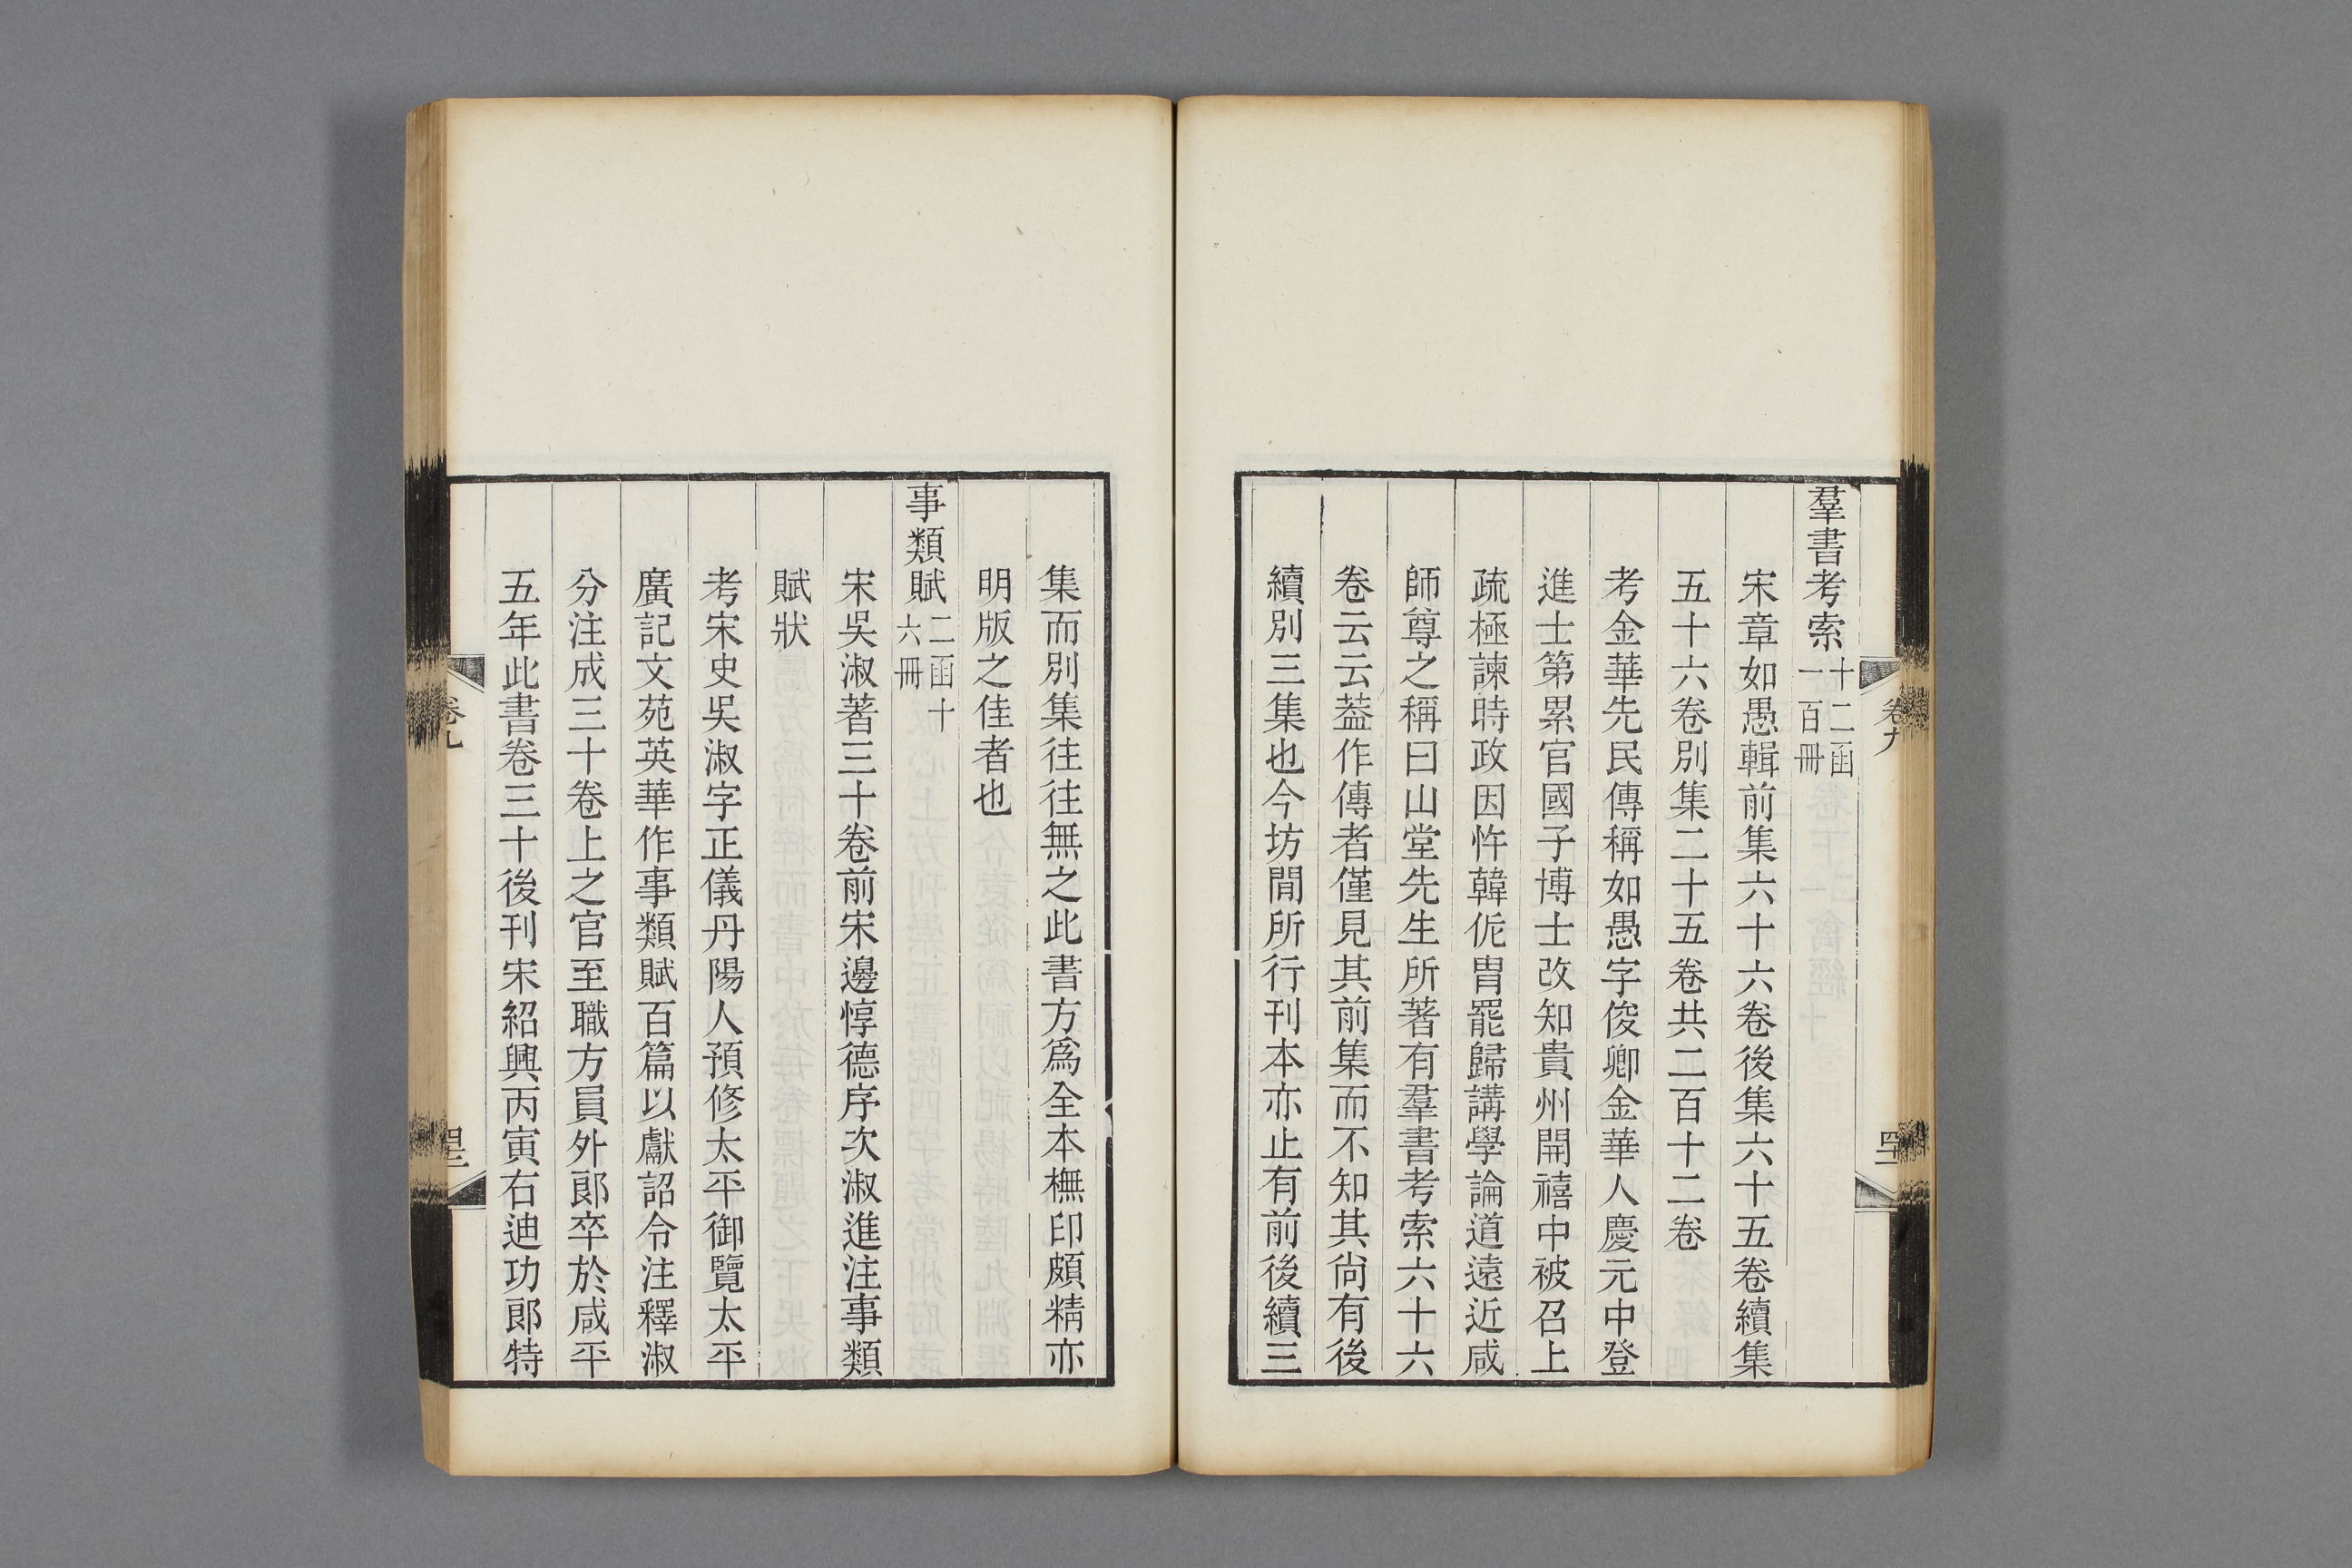 羣書考索十二函一百冊
宋章如愚輯前集六十六卷後集六十五卷續集
五十六卷別集二十五卷共二百十二卷
考金華先民傳稱如愚字俊卿金華人慶元中登
進士第累官國子博士改知貴州開禧中被召上
疏極諫時政因忤韓侂胄罷歸講學論道遠近咸
師尊之稱曰山堂先生所著有羣書考索六十六
卷云云葢作傳者僅見其前集而不知其尙有後
續別三集也今坊閒所行刊本亦止有前後續三
卷九
四十一
集而別集往往無之此書方爲全本橅印頗精亦
明版之佳者也
事類賦二函十六冊
宋吳淑著三十卷前宋邊惇德序次淑進注事類
賦狀
考宋史吳淑字正儀丹陽人預修太平御覽太平
廣記文苑英華作事類賦百篇以獻詔令注釋淑
分注成三十卷上之官至職方員外郞卒於咸平
五年此書卷三十後刊宋紹興丙寅右迪功郞特
卷九